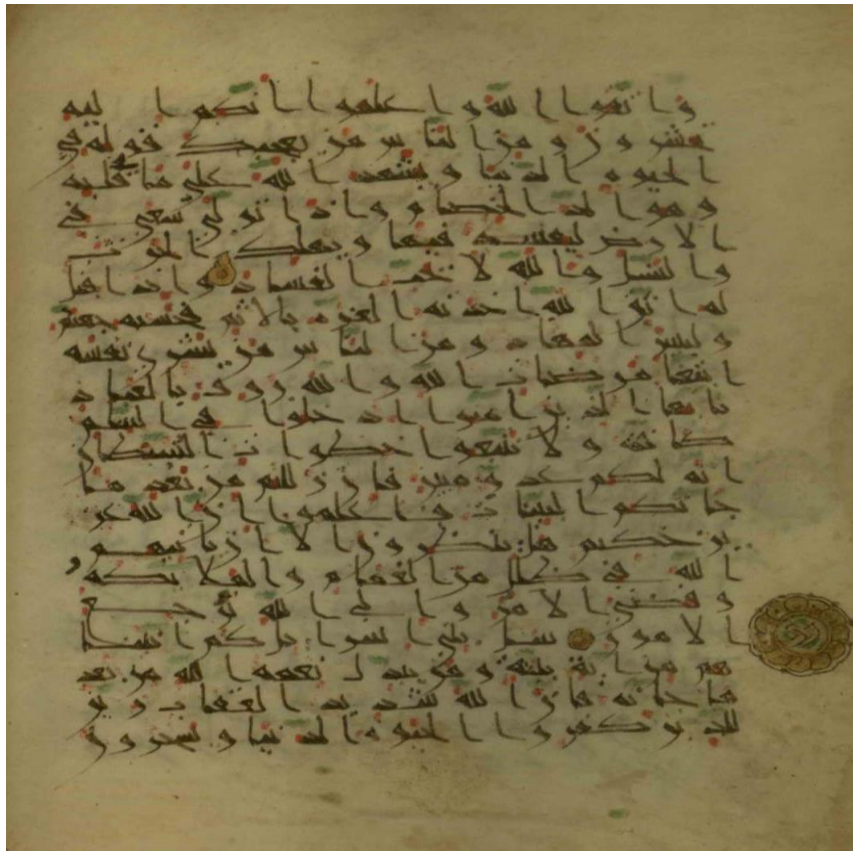 واتقوا الله واعلموا انكم اليه
تحشرون ومن الناس من يعجبك قوله في
الحيوة الدنيا ويشهد الله على ما في قلبه
وهو الد الخصام واذا تولى سعى في
الارض ليفسد فيها ويهلك الحرث
والنسل والله لا يحب الفساد واذا قيل
له اتق الله اخذته العزة بالاثم فحسبه جهنم
ولبئس المهاد ومن الناس من يشري نفسه
ابتغا مرضات الله والله روف بالعباد
يايها الذين امنوا ادخلوا في السلم
كافة ولا تتبعوا خطوات الشيطان
انه لكم عدو مبين فان زللتم من بعد ما
جاتكم البينات فاعلموا ان الله عز
يز حكيم هل ينظرون الا ان ياتيهم
الله في ظلل من الغمام والملئكة
وقضي الامر والى الله ترجع
الامور سل بني اسرايل كم اتينا
هم من اية بينة ومن يبدل نعمة الله من بعد
ما جاته فان الله شديد العقاب زين
للذين كفروا الحيوة الدنيا ويسخرون